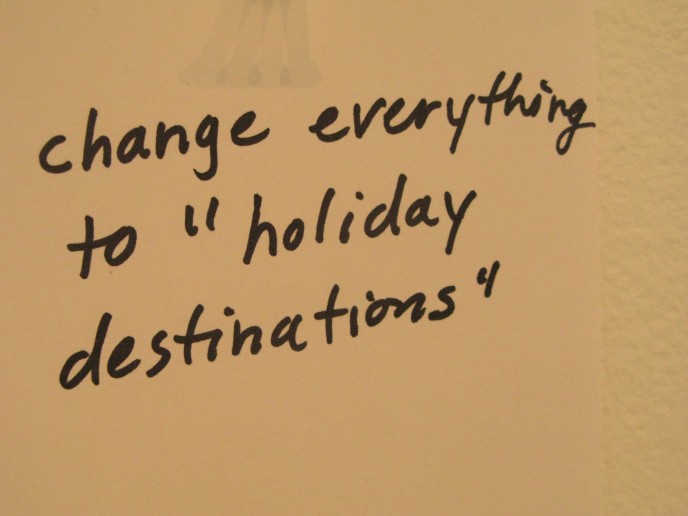 change everything
to "holiday
destinations"